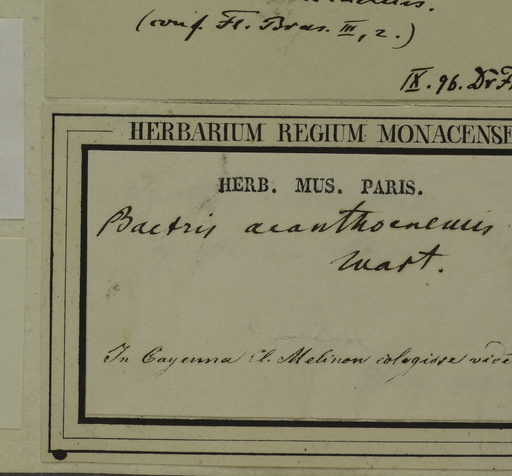 (conf. Fl. Bras. III, 2.)
IX. 96. Dr
HERBARIUM REGIUM MONACENSE
HERB. MUS. PARIS.
Bactris acanthocnemis
Mart.
In Cayenna Cl. Melinon colegisse